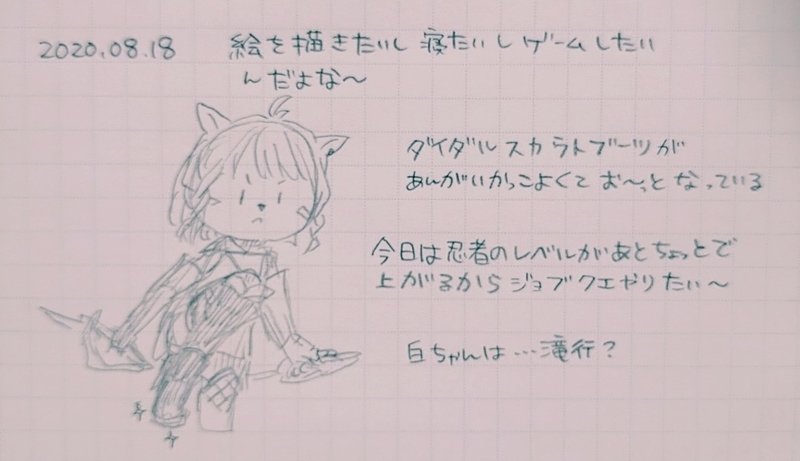 2020.08.18
絵を描きたいし 寝たいし ゲームしたい
んだよな〜
ダイダルスカラトブーツが
あんがいかっこよくて お〜っと なっている
今日は忍者のレベルがあとちょっとで
上がるから ジョブクエやりたい〜
白ちゃんは…滝行？